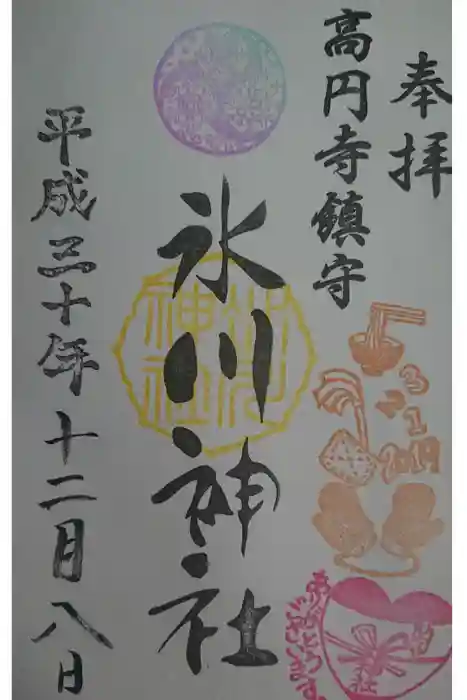 奉拝
高円寺鎮守
氷川神社
平成三十年十二月八日
氷川神社
3
1
2019
ありがとう
ございます